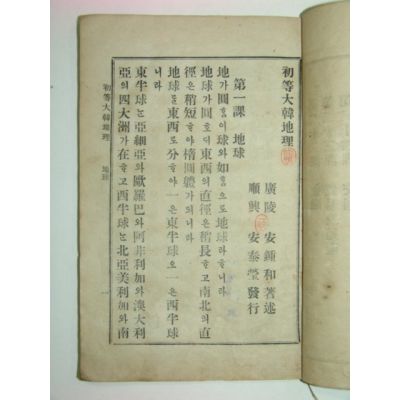 初等大韓地理
廣陵 安鍾和著述
順興 安泰瑩發行
第一課 地球
地가圓ᄒᆞ이球와如ᄒᆞᆷ으로地球라ᄒᆞᄂᆞ니라
地球가圓ᄒᆞ되東西의直徑은稍長ᄒᆞ고南北의直
徑은稍短ᄒᆞ야楕圓體가되니라
地球를東西로分ᄒᆞ야一은東半球오一은西半球
니라
東半球ᄂᆞᆫ亞細亞와歐羅巴와阿非利加와澳大利
亞의四大洲가在ᄒᆞ고西半球ᄂᆞᆫ北亞美利加와南
初等大韓地理 地球